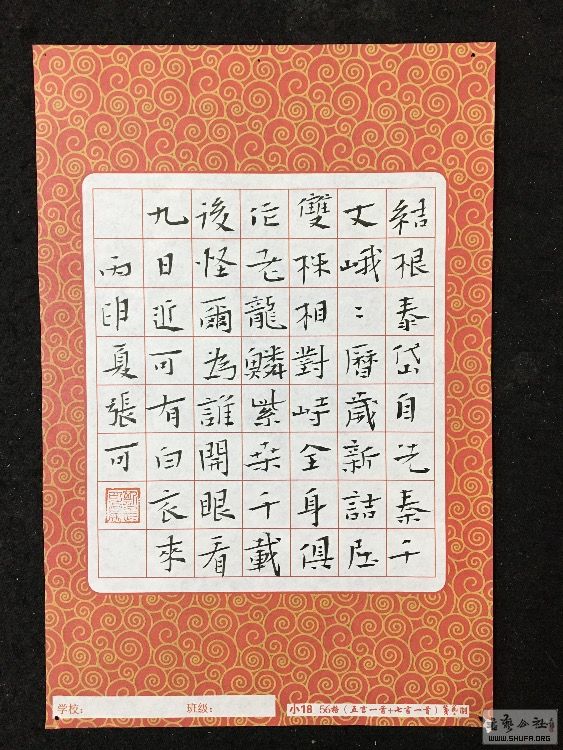 結根泰岱自先秦千
丈峨〻曆歲新詰屈
雙株相對峙全身俱
作老龍鱗柴桑千載
後怪爾為誰開眼看
九日近可有白衣來
丙申夏張可
学校： 班级：
小18 56格（五言一首+七言一首）
書藝公社
WWW.SHUFA.ORG